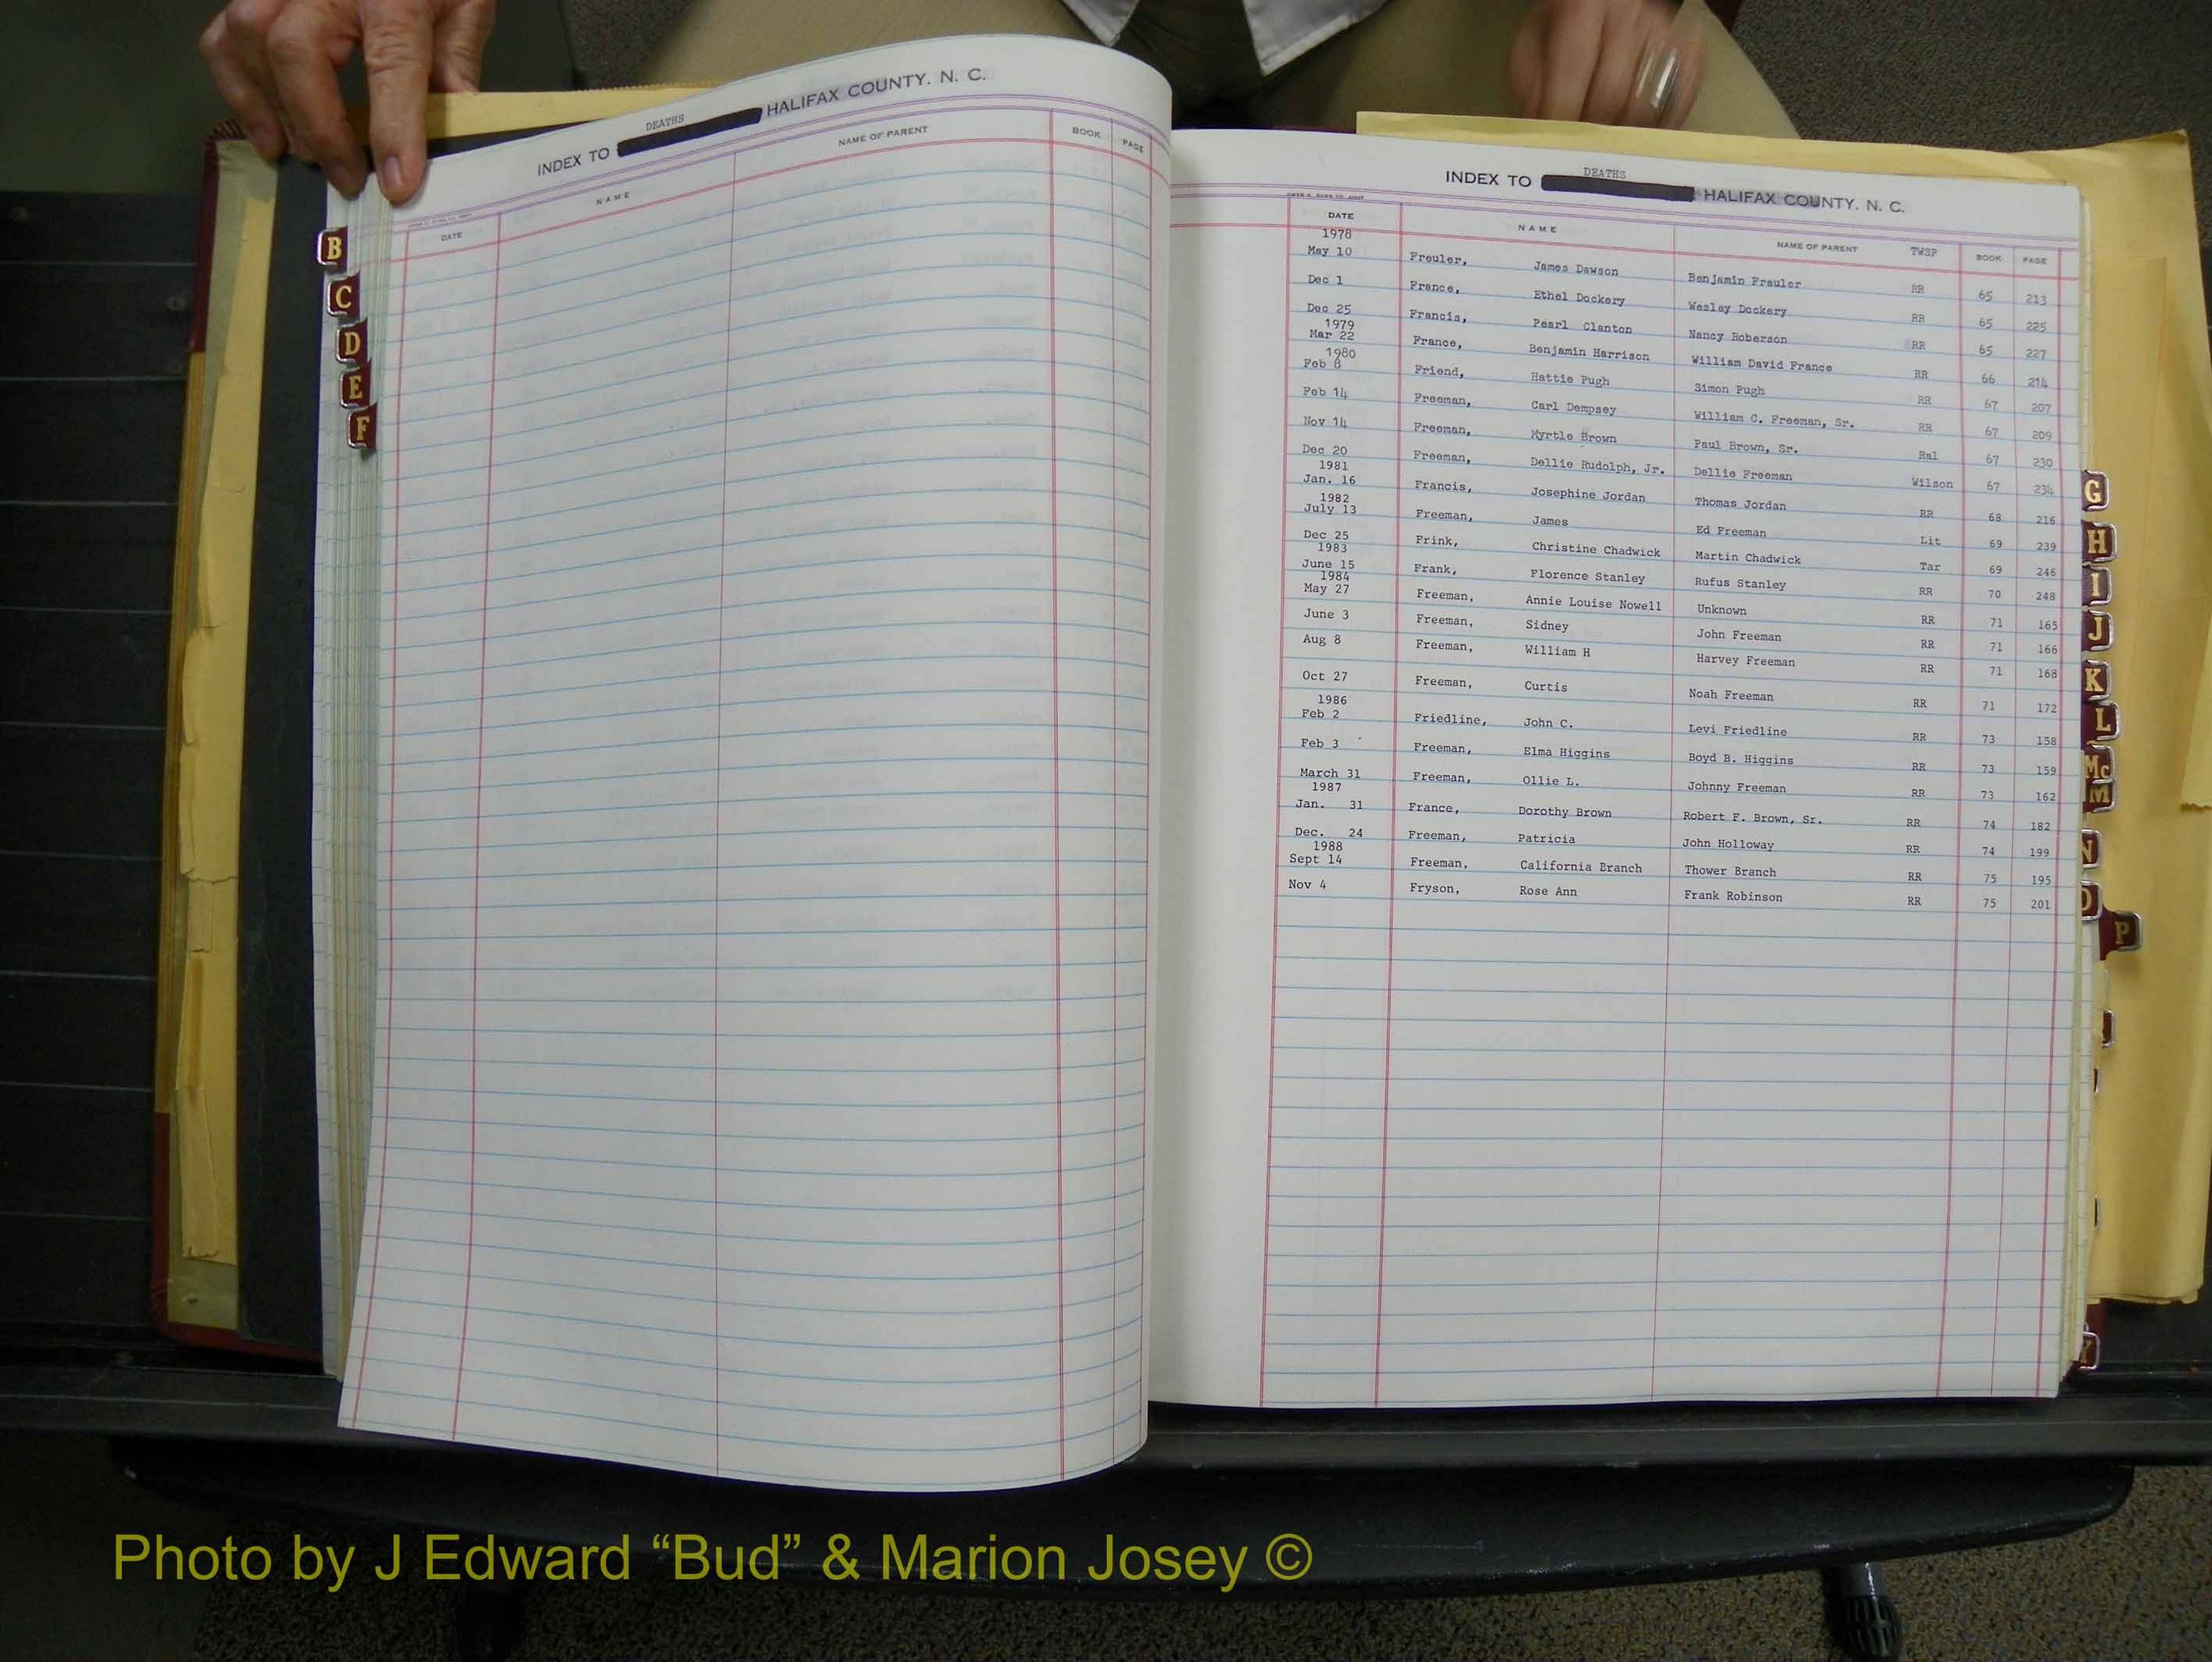 INDEX TO DEATHS HALIFAX COUNTY. N. C.
DATE NAME NAME OF PARENT BOOK PAGE
B
C
D
E
F
INDEX TO DEATHS HALIFAX COUNTY. N. C.
DATE NAME NAME OF PARENT TWSP BOOK PAGE
1978
May 10 Freuler, James Dawson Benjamin Freuler RR 65 213
Dec 1 France, Ethel Dockery Wesley Dockery RR 65 225
Dec 25 Francis, Pearl Clanton Nancy Roberson RR 65 227
1979
Mar 22 France, Benjamin Harrison William David France RR 66 214
1980
Feb 8 Friend, Hattie Pugh Simon Pugh RR 67 207
Feb 14 Freeman, Carl Dempsey William C. Freeman, Sr. RR 67 209
Nov 14 Freeman, Myrtle Brown Paul Brown, Sr. Ral 67 230
Dec 20 Freeman, Dellie Rudolph, Jr. Dellie Freeman Wilson 67 234
1981
Jan. 16 Francis, Josephine Jordan Thomas Jordan RR 68 216
1982
July 13 Freeman, James Ed Freeman Lit 69 239
Dec 25 Frink, Christine Chadwick Martin Chadwick Tar 69 246
1983
June 15 Frank, Florence Stanley Rufus Stanley RR 70 248
1984
May 27 Freeman, Annie Louise Nowell Unknown RR 71 165
June 3 Freeman, Sidney John Freeman RR 71 166
Aug 8 Freeman, William H Harvey Freeman RR 71 168
Oct 27 Freeman, Curtis Noah Freeman RR 71 172
1986
Feb 2 Friedline, John C. Levi Friedline RR 73 158
Feb 3 Freeman, Elma Higgins Boyd B. Higgins RR 73 159
March 31 Freeman, Ollie L. Johnny Freeman RR 73 162
1987
Jan. 31 France, Dorothy Brown Robert F. Brown, Sr. RR 74 182
Dec. 24 Freeman, Patricia John Holloway RR 74 199
1988
Sept 14 Freeman, California Branch Thower Branch RR 75 195
Nov 4 Fryson, Rose Ann Frank Robinson RR 75 201
G
H
I
J
K
L
Mc
M
N
O
P
Y
Photo by J Edward “Bud” & Marion Josey ©